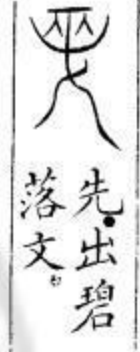 先出碧
落文